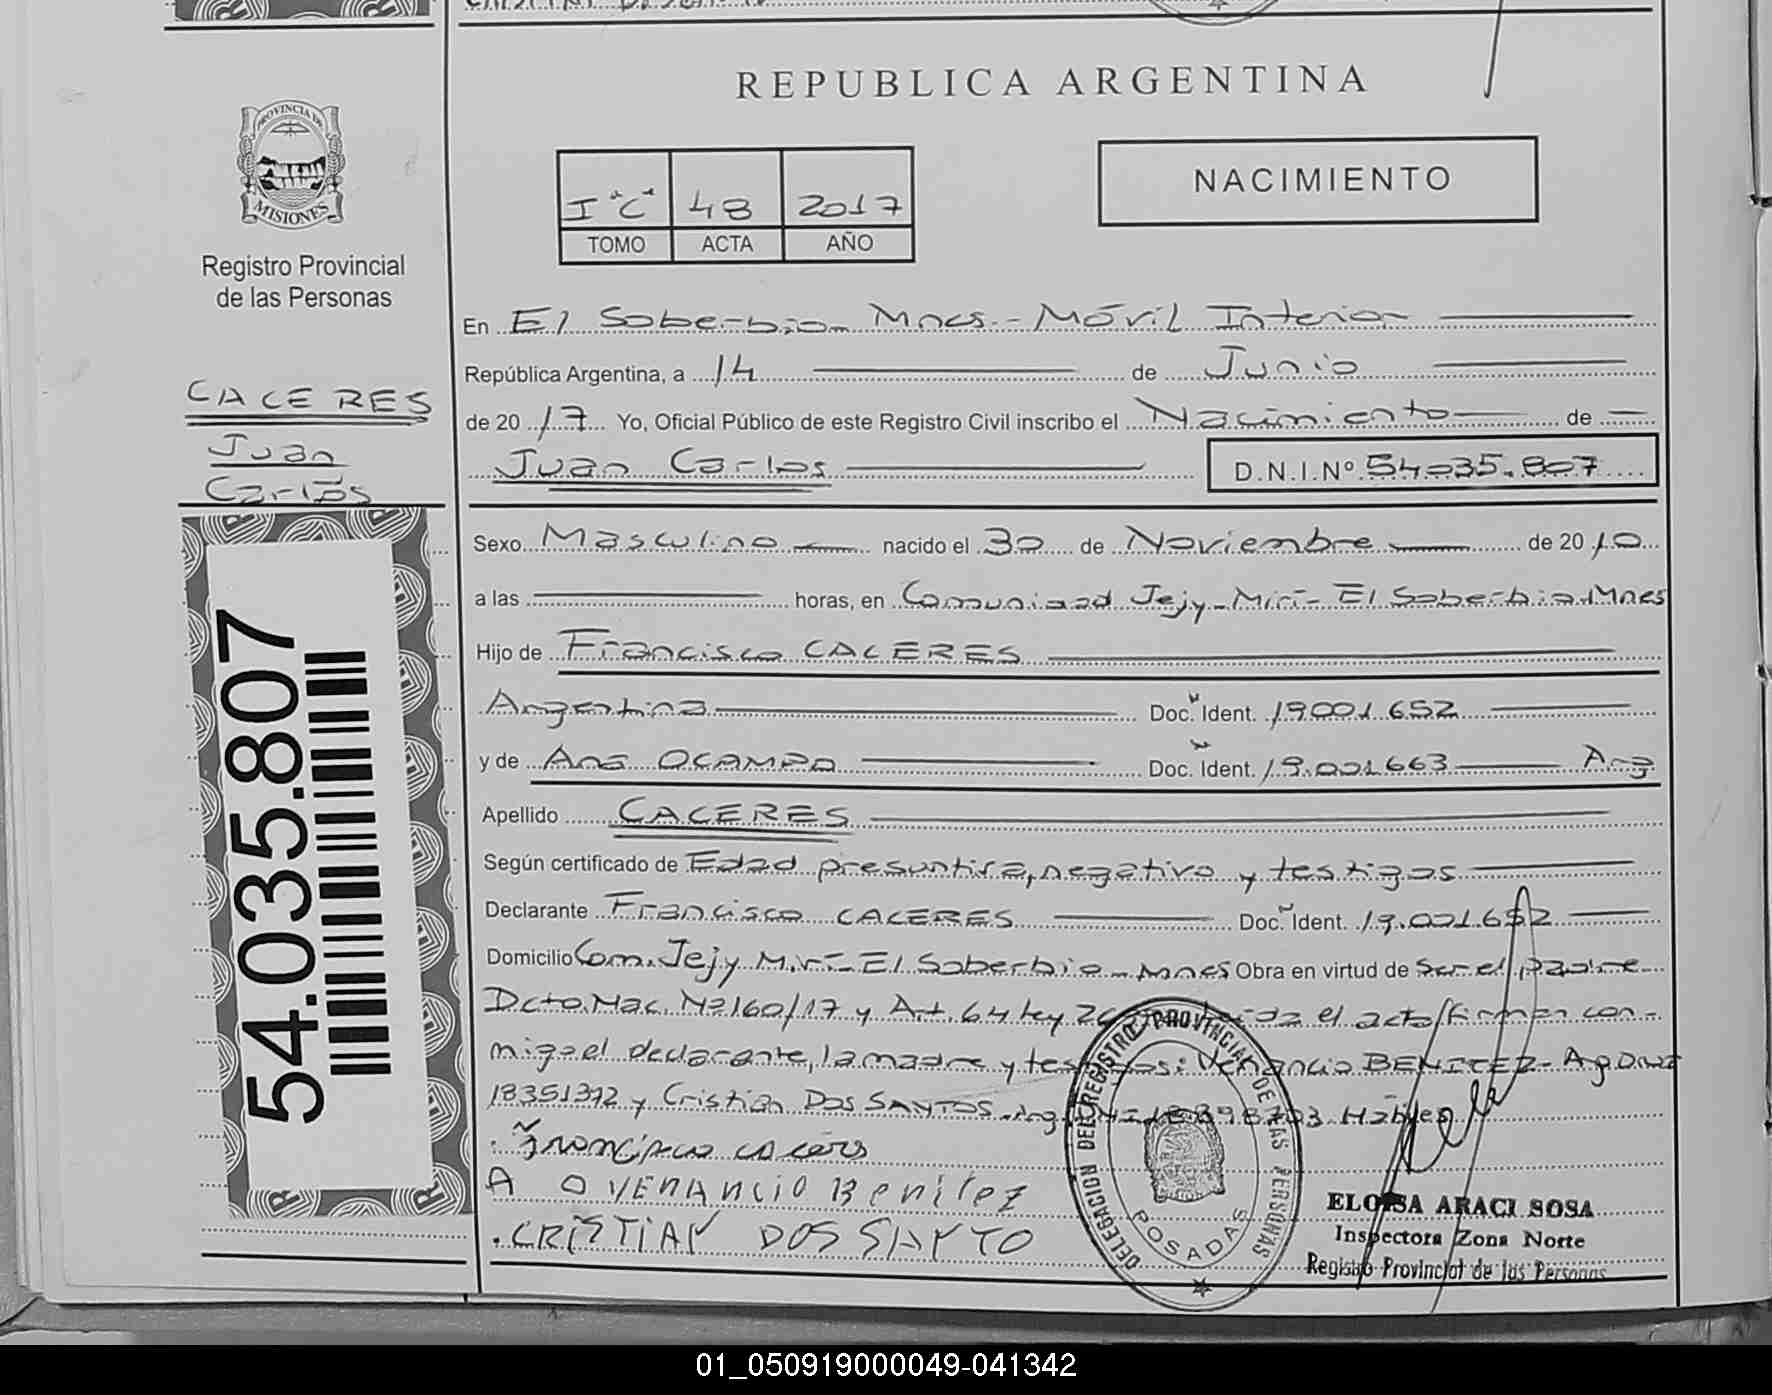 REPUBLICA ARGENTINA
PROVINCIA DE
MISIONES
Registro Provincial
de las Personas
NACIMIENTO
I "C" 48 2017
TOMO ACTA AÑO
En El Soberbio Mnes.- Móvil Interior
República Argentina, a 14 de Junio
de 20 17 Yo, Oficial Público de este Registro Civil inscribo el Nacimiento de
Juan Carlos D.N.I.Nº 54.035.807
CACERES
Juan
Carlos
Sexo Masculino nacido el 30 de Noviembre de 20 10
a las horas, en Comunidad Jejy-Mirí- El Soberbio.Mnes
Hijo de Francisco CACERES
Argentina Doc. Ident. 19.001.652
y de Ana OCAMPO Doc. Ident. 19.001.663 Arg
Apellido CACERES
Según certificado de Edad presuntiva, negativo y testigos
Declarante Francisco CACERES Doc. Ident. 19.001.652
Domicilio Com. Jejy Mirí- El Soberbio - Mnes Obra en virtud de Ser el padre
Dcto. Nac. Nº 160/17 y Art. 64 Ley el acto firman con-
migo el declarante, la madre y testigos: Venancio BENITEZ- Arg
18351372 y Cristian Dos SANTOS. Arg
Francisco caceres
A O VENANCIO Benitez
CRISTIAN DOS SANTO
54.035.807
DELEGACION DEL REGISTRO PROVINCIAL DE LAS PERSONAS
POSADAS
ELOISA ARACI SOSA
Inspectora Zona Norte
Registro Provincial de las Personas
01_050919000049-041342